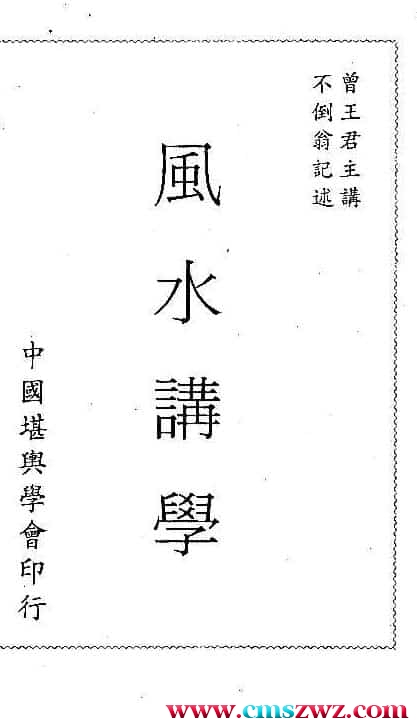 曾王君主講
不倒翁記述
風水講學
中國堪輿學會印行
www.cmszwz.com